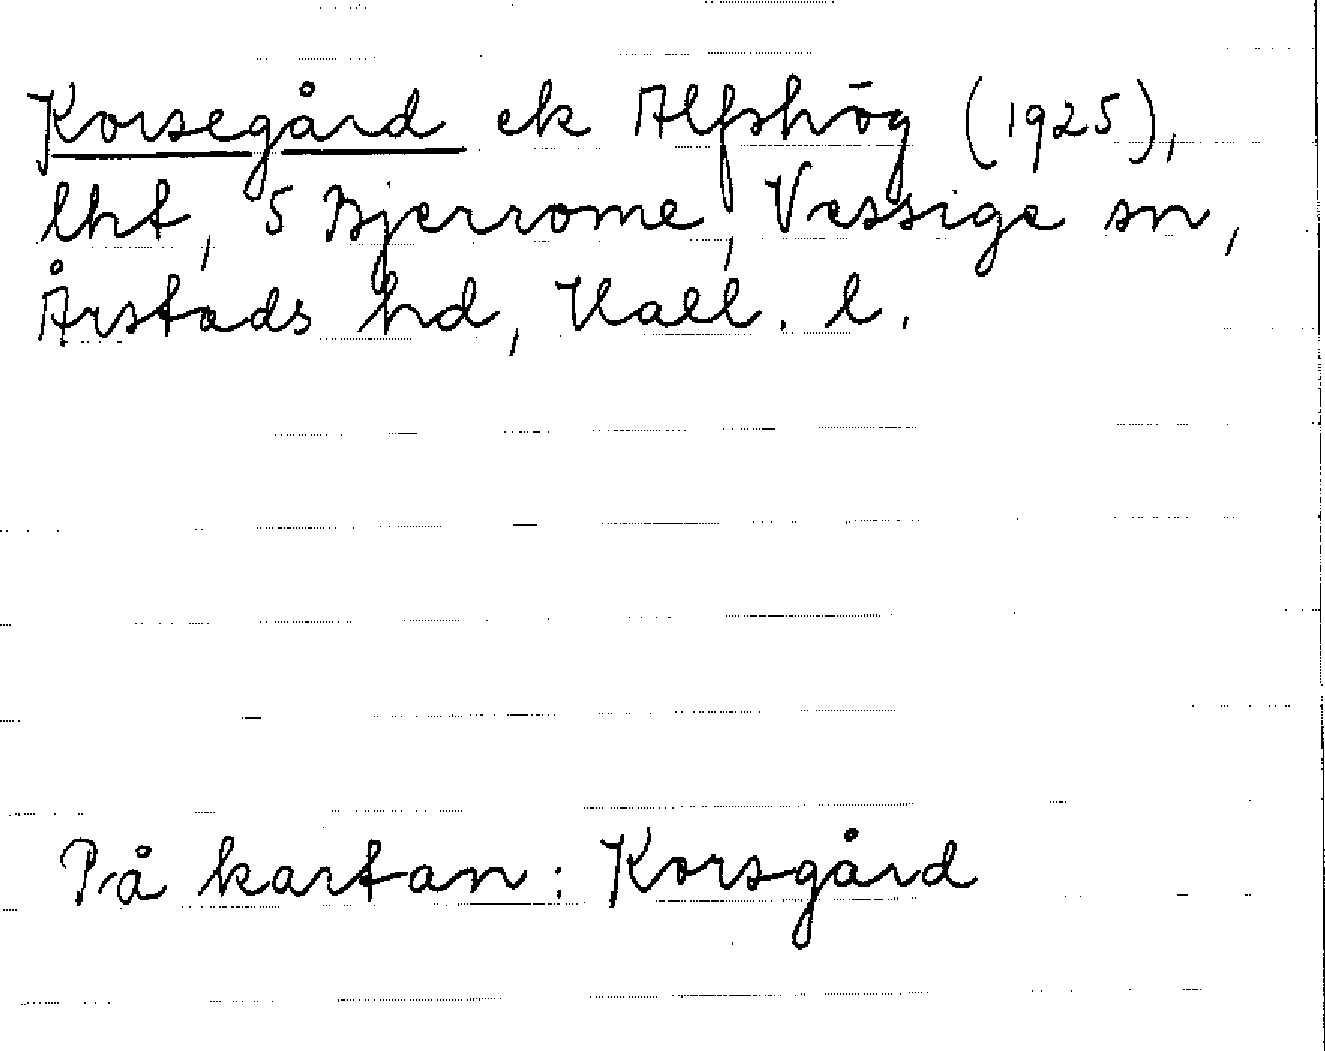 Korsegård ek Alfshög (1925),
lht, 5 Bjerrome, Vessige sn,
Årstads hd, Hall. l.
På kartan: Korsgård